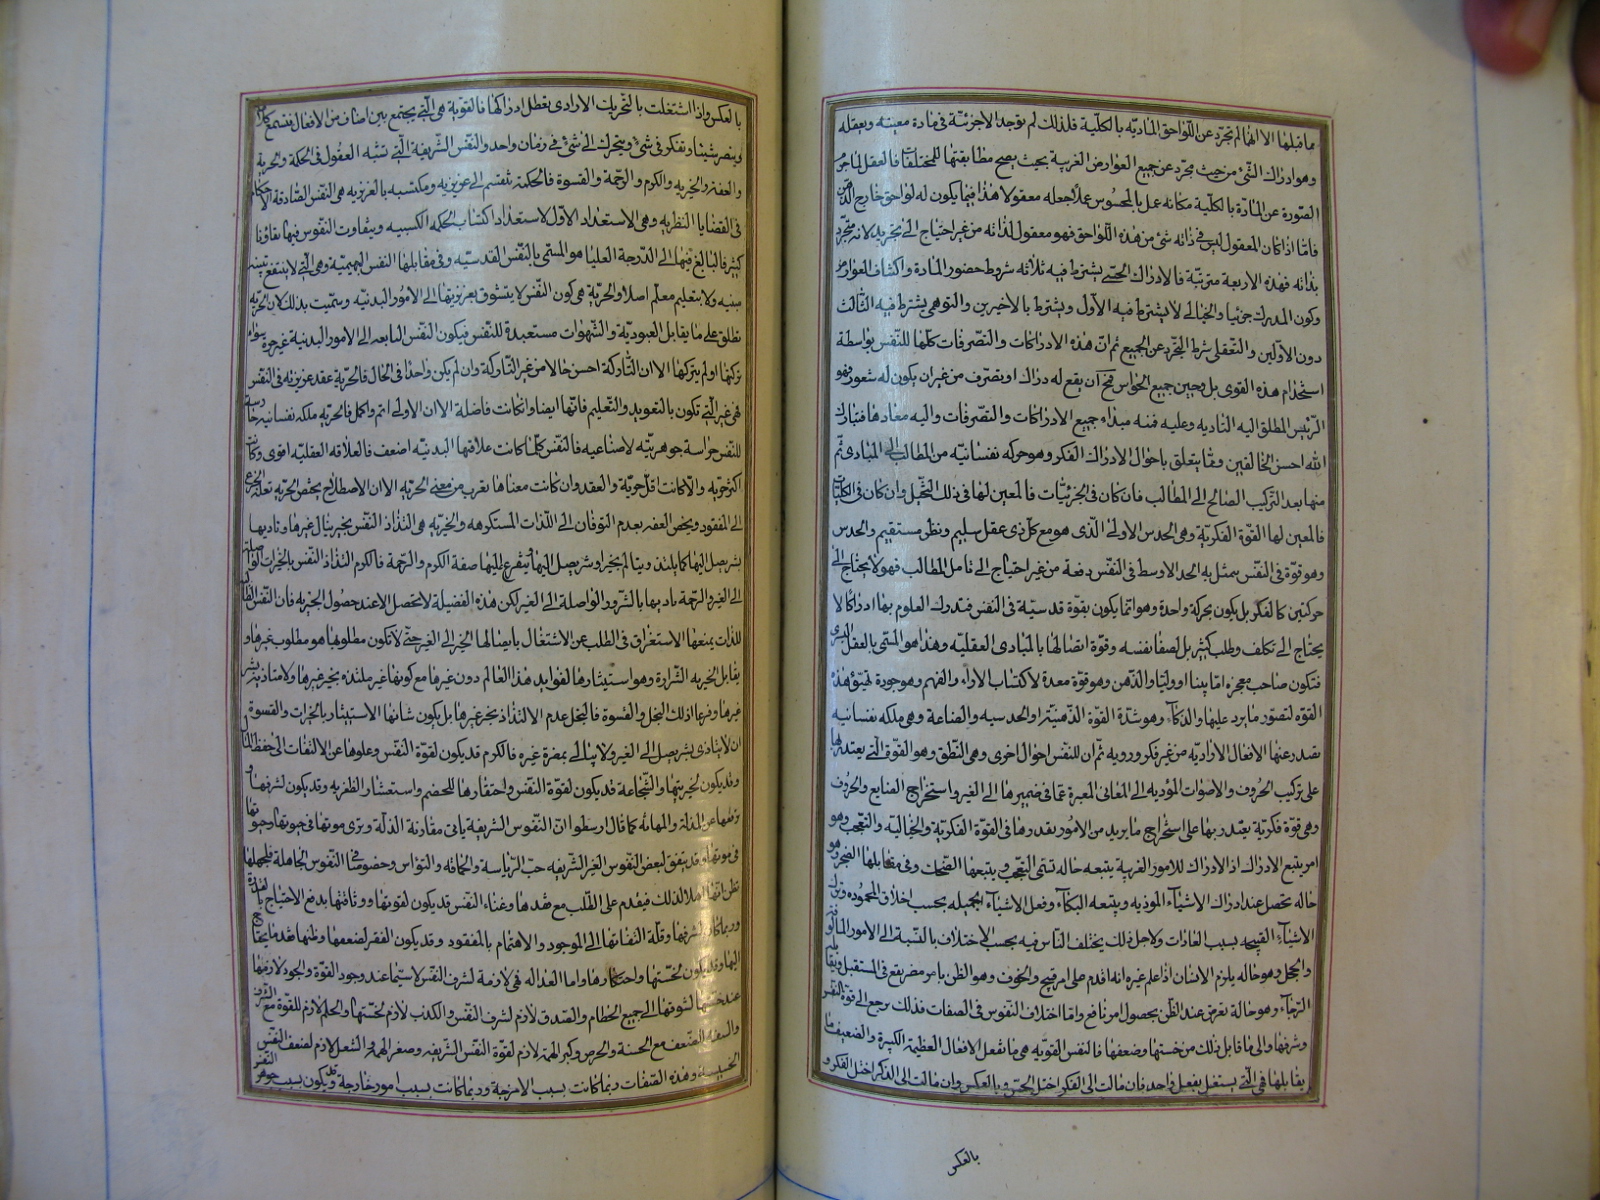 ما قبلها الا انها لم تجرد عن اللواحق المادية بالكلية فلذلك لم توجد الاجزئية في مادة معينة وبعقله
وهو ادراك الشئ من حيث مجرد عن جميع العوارض الغريبة بحيث يصح مطابقتها للمختلفات فالعقل لما جرد
الصورة عن المادة بالكلية مكانه عمل بالمحسوس عملا جعله معقولا هذا فيما يكون له لواحق خارج الذهن
فاما اذا كان المعقول ليس في ذاته شئ من هذه اللواحق فهو معقول لذاته من غير احتياج الى تجريد لانه متجرد
بذاته فهذه الاربعة مترتبة فالادراك الحسي يشترط فيه ثلاثه شروط حضور المادة واكتناف العوارض
وكون المدرك جزئيا والخيالي لا يشترط فيه الاول ويشترط بالاخيرين والتوهمي يشترط فيه الثالث
دون الاولين والتعقلي شرط التجرد عن الجميع ثم ان هذه الادراكات والتصرفات كلها للنفس بواسطة
استخدام هذه القوى بل وحين جميع الحواس ان يقع له دراك او تصرف من غير ان يكون له شعور فهو
الرئيس المطلق اليه التاديه وعليه فمنه مبداء جميع الادراكات والتصرفات واليه معادها فتبارك
الله احسن الخالقين ومما يتعلق باحوال الادراك الفكر وهو حركه نفسانيه من المطالب الى المبادى ثم
منها بعد التركيب الصالح الى المطالب فان كان في الجزئيات فالمعين لها في ذلك التخيل وان كان في الكليات
فالمعين لها القوة الفكرية وهي الحدس الاولى الذى هو مع كل ذى عقل سليم ونظر مستقيم والحدس
وهو قوة في النفس يتمثل به الحد الاوسط في النفس دفعة من غير احتياج الى تامل المطالب فهو لا يحتاج الى
حركتين كالفكر بل يكون بحركة واحدة وهو انما يكون بقوة قدسية في النفس فتدرك العلوم بها ادراكا لا
يحتاج الى تكلف وطلب كثير بل لصفاء نفسه وقوة اتصالها بالمبادى العقليه وهذا هو المسمى بالعقل
فتكون صاحب معجزه اما نبيا او وليا والذهن وهو قوة معدة لاكتساب الاراء والفهم وهو جودة تهيؤ هذه
القوه لتصور ما يرد عليها والذكاء وهو شدة القوة الذهنية او الحدسيه والصناعة وهي ملكه نفسانيه
يصدر عنها الافعال الاراديه من غير فكر ورويه ثم ان للنفس احوال اخرى وهي النطق وهو القوة التي يقتدر بها
على تركيب الحروف والاصوات المؤديه الى المعاني المعبرة عما في ضميرها الى الغير واستخراج الصنايع والحروف
وهي قوة فكرية يقتدر بها على استخراج ما يريد من الامور بقدرها في القوة الفكرية والخيالية والتعجب وهو
امر يتبع الادراك اذ الادراك للامور الغريبة يتبعه حاله تسمى التعجب ويتبعها الضحك وفي مقابلها الضجر وهو
حاله تحصل عند ادراك الاشياء الموذيه ويتبعه البكاء وفعل الاشياء الجميله بحسب اخلاق المحموده وترك
الاشياء القبيحه بسبب العادات ولاجل ذلك يختلف الناس فيه بحسب الاختلاف بالنسبة الى الامور المالوفة
والخجل وهو حاله يلزم الانسان اذا علم غيره انه اقدم على امر قبيح والخوف وهو الظن بامر مضر يقع في المستقبل
الرجاء وهو حالة تعرض عند الظن بحصول امر نافع واما اختلاف النفوس في الصفات فذلك يرجع الى قوة النفس
وشرفها والى ما قابل ذلك من خستها وضعفها فالنفس القويه هي ما تفعل الافعال العظيمة الكبيرة والضعيف ما
يقابلها فهي التي يستغل بفعل واحد فان مالت الى الفكر اختل الحس وبالعكس وان مالت الى الذكر اختل الفكر و
بالعكس
بالعكس واذا اشتغلت بالتحريك الارادى بطل ادراكها فالقوية هي التي يجتمع بين اصناف من الافعال فتسمع كلاما
وتبصر شيئا وتفكر في شئ ويتحرك الى شئ في زمان واحد والنفس الشريفية التي تشبه العقول في الحكمة والحرية
والعفة والخيريه والكرم والرحمة والقسوة فالحكمة تنقسم الى غريزيه ومكتسبه بالغريزيه هي النفس الصادقة الاحكام
في القضايا النظريه وهي الاستعداد الاول لاستعداد اكتساب الحكمه الكسبيه ويتفاوت النفوس فيها تفاوتا
كثيرا فالبالغ فيها الى الدرجة العليا هو المسمى بالنفس القدسيه وفي مقابلها النفس البهيمية وهي التي لا ينتفع
ولا بتعليم معلم اصلا والحرية هي كون النفس لا يتشوق بغريزتها الى الامور البدنيه وسميت بذلك لان الحريه
تطلق على ما يقابل العبودية والشهوات مستعبدة للنفس فيكون النفس التابعه الى الامور البدنية غير حرة سواء
تركها او لم يتركها الا ان التاركة احسن حالا من غير التاركة وان لم يكن واحدا في الحال فالحرية عفة غريزيه في النفس
فهي غير التي تكون بالتعويد والتعليم فانها ايضا وان كانت فاضلة الا ان الاولى اتم واكمل فالحريه ملكه نفسانيه حارسة
للنفس حراسة جوهريه لا صناعيه فالنفس كلما كانت علاقتها البدنيه اضعف فالعلاقه العقليه اقوى وكانت
اكثر حريه والا كانت اقل حرية والعفه وان كانت معناها يقرب من معنى الحريه الا ان الاصطلاح يخص الحريه
الى المفقود ويخص العفه بعدم التوقان الى اللذات المستكرهه والخيريه هي التذاذ النفس بخير ينال غيرها وتاذيها
بشر يصل اليها كما يلتذ ويتالم بخير او شر يصل اليها يتفرع عليها صفة الكرم والرحمة فالكرم التذاذ النفس بالخيرات
الى الغير والرحمة تاذيها بالشرور الواصلة الى الغير لكن هذه الفضيلة لا تحصل الا عند حصول الخيريه فان النفس
للذات يمنعها الاستغراق في الطلب عن الاشتغال بايصالها الخير الى الغير حتى لا تكون مطلوبها هو مطلوب غيرها و
يقابل الخيريه الشرارة وهو استيثارها لفوايد هذا العالم دون غيرها مع كونها غير ملتذه بخير غيرها ولا متاذيه بشر
غيرها وفرعا ذلك البخل والقسوة فالبخل عدم الالتذاذ بخير غيرها بل يكون شانها الاستيثار بالخيرات والقسوة
ان لا يتاذى بشر يصل الى الغير ولا يبالى بمضرة غيره فالكرم قد يكون لقوة النفس وعلوها عن الالتفات الى حفظ المال
وقد يكون لخيريتها والشجاعة قد يكون لقوة النفس واحتقارها للخصم واستشعار الظفر به وقد يكون لشرفها و
ترفعها عن المذلة والمهانه كما قال ارسطو ان النفوس الشريفة يابى مقارنة الذلة وترى موتها في حيوتها وحيوتها
في موتها وقد يتفق لبعض النفوس الغير الشريفه حب الرياسة والحماقه والنواس وخصوصا في النفوس الجاهلة فلجهلها
تظن انها اهلا لذلك فيقدم على الطلب مع فقدها وغناء النفس قد يكون لقوتها ووثاقتها بدفع الاحتياج
وربما كان لشرفها وقلة التفاتها الى الموجود والاهتمام بالمفقود وقد يكون الفقر لضعفها وظنها فقد ما يحتاج
اليها وقد يكون لخستها واحتكارها واما العداله فهي لازمة لشرف النفس لا سيما عند وجود القوة والجور لازمها
عند خستها لشوقها الى جميع الحطام والصدق لازم لشرف النفس والكذب لازم لخستها والحلم لازم للقوة مع الشرف
والسفه للضعف مع الخسة والحرص وكبر الهمة لازم لقوة النفس الشريفه وصغر الهمة والتنعل لازم لضعف النفس
الخسيسة وهذه الصفات ربما كانت بسبب الامزجة وربما كانت بسبب امور خارجة وقد يكون بسبب جوهر النفس